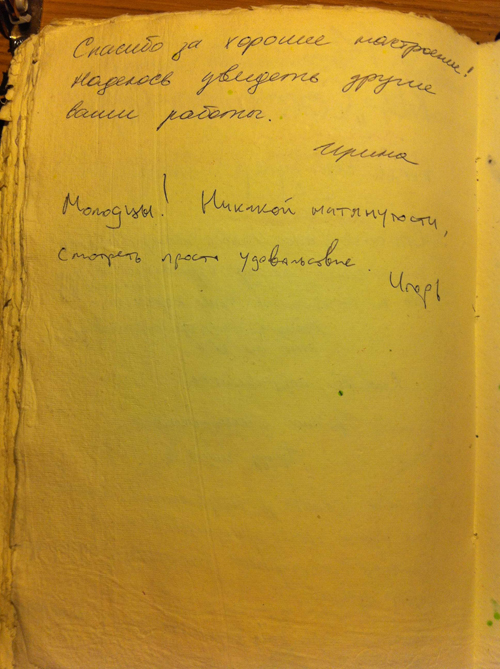 Спасибо за хорошее настроение!
Надеюсь увидеть другие
ваши работы.
Ирина
Молодцы! Никакой натянутости,
смотреть просто удовальствие.
Игорь